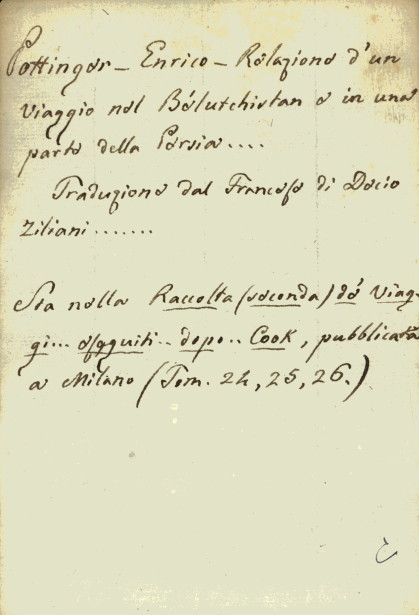 Pottinger - Enrico - Relazione d'un
viaggio nel Bélutchistan e in una
parte della Persia....
Traduzione dal Francese di Decio
Ziliani.......
Sta nella Raccolta (seconda) de' viag-
gi... eseguiti.. dopo.. Cook, pubblicata
a Milano (Tom. 24, 25, 26.)